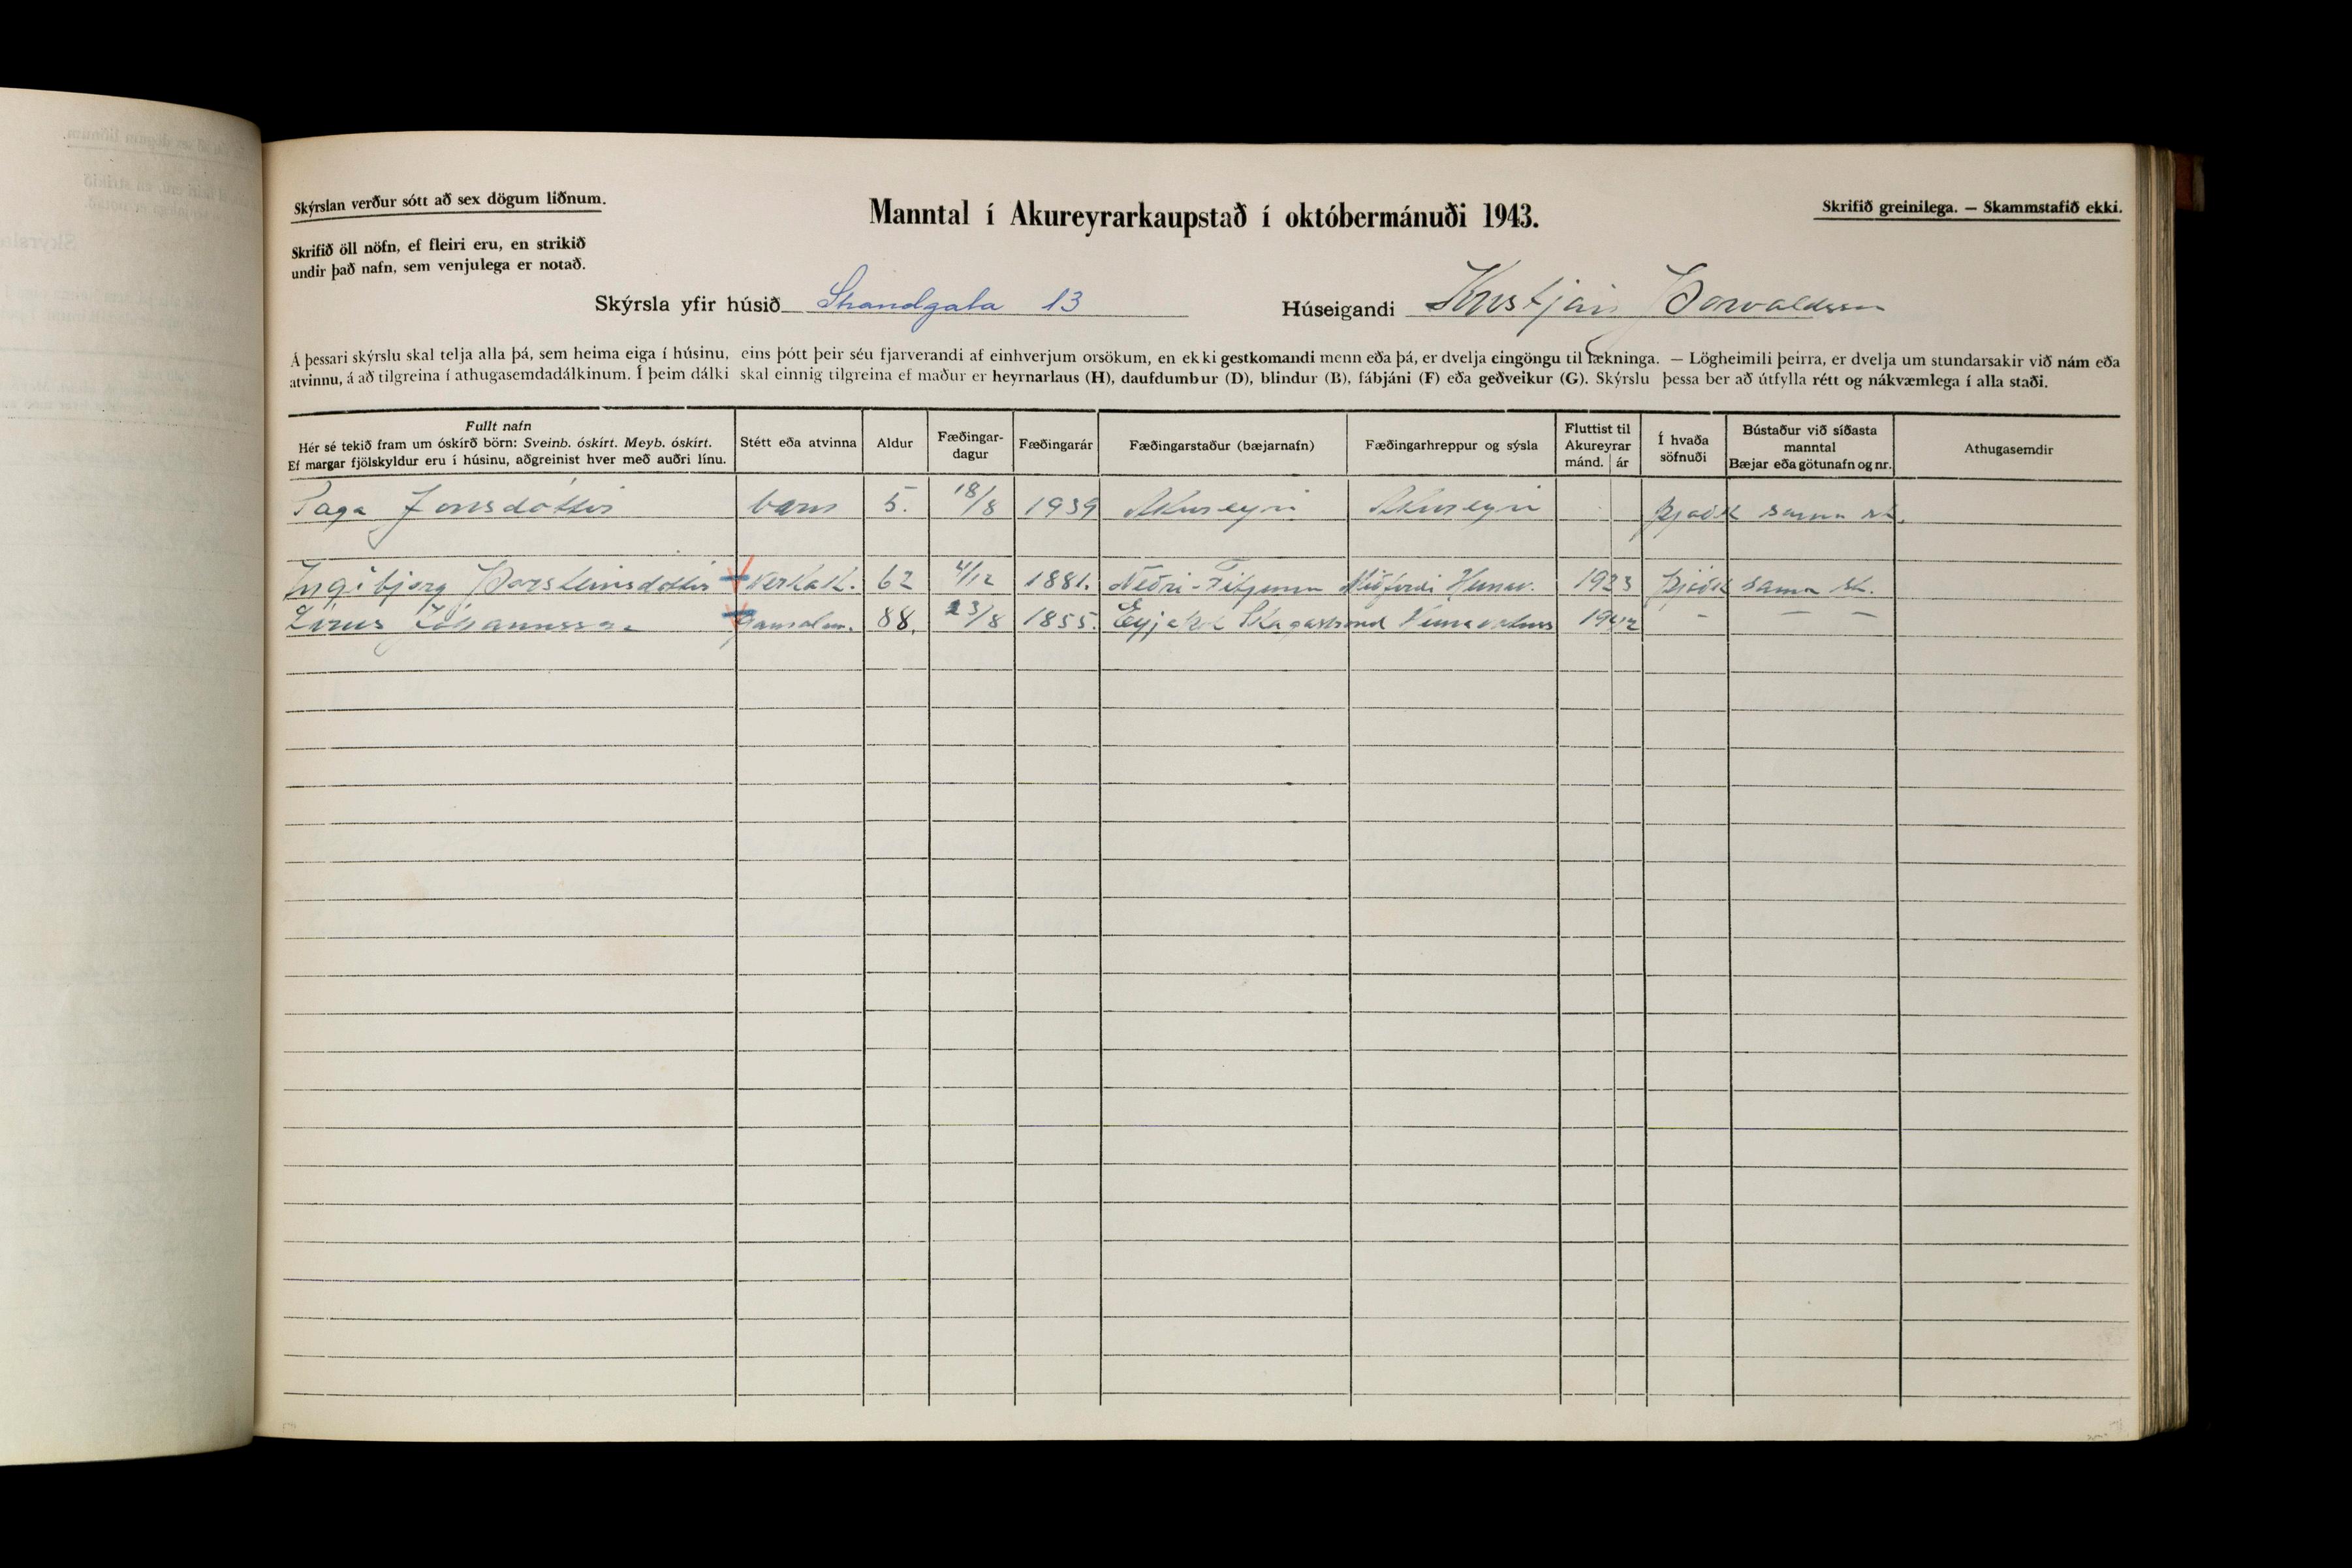 Skýrslan verður sótt að sex dögum liðnum.
Manntal í Akureyrarkaupstað í októbermánuði 1943.
Skrifið greinilega. — Skammstafið ekki.
Skrifið öll nöfn, ef fleiri eru, en strikið
undir það nafn, sem venjulega er notað.
Skýrsla yfir húsið Strandgata 13 Húseigandi Kristján Þorvaldsson
Á þessari skýrslu skal telja alla þá, sem heima eiga í húsinu, eins þótt þeir séu fjarverandi af einhverjum orsökum, en ekki gestkomandi menn eða þá, er dvelja eingöngu til lækninga. — Lögheimili þeirra, er dvelja um stundarsakir við nám eða
atvinnu, á að tilgreina í athugasemdadálkinum. Í þeim dálki skal einnig tilgreina ef maður er heyrnarlaus (H), daufdumbur (D), blindur (B), fábjáni (F) eða geðveikur (G). Skýrslu þessa ber að útfylla rétt og nákvæmlega í alla staði.
Fullt nafn
Hér sé tekið fram um óskírð börn: Sveinb. óskírt. Meyb. óskírt.
Ef margar fjölskyldur eru í húsinu, aðgreinist hver með auðri línu.
Stétt eða atvinna
Aldur
Fæðingar-
dagur
Fæðingarár
Fæðingarstaður (bæjarnafn)
Fæðingarhreppur og sýsla
Fluttist til
Akureyrar
mánd. ár
Í hvaða
söfnuði
Bústaður við síðasta
manntal
Bæjar eða götunafn og nr.
Athugasemdir
Saga Jónsdóttir barn 5. 18/8 1939 Akureyri Akureyri þjóðk sama st.
Ingibjörg Þorsteinsdóttir Verkak. 62 4/12 1881. Neðri-Fitjum Miðfirði Húnav. 1923 þjóðk sama st.
Lárus Jóhannsson Gamalm. 88. 23/8 1855. Skagaströnd Húnavatnss 1942 – – –